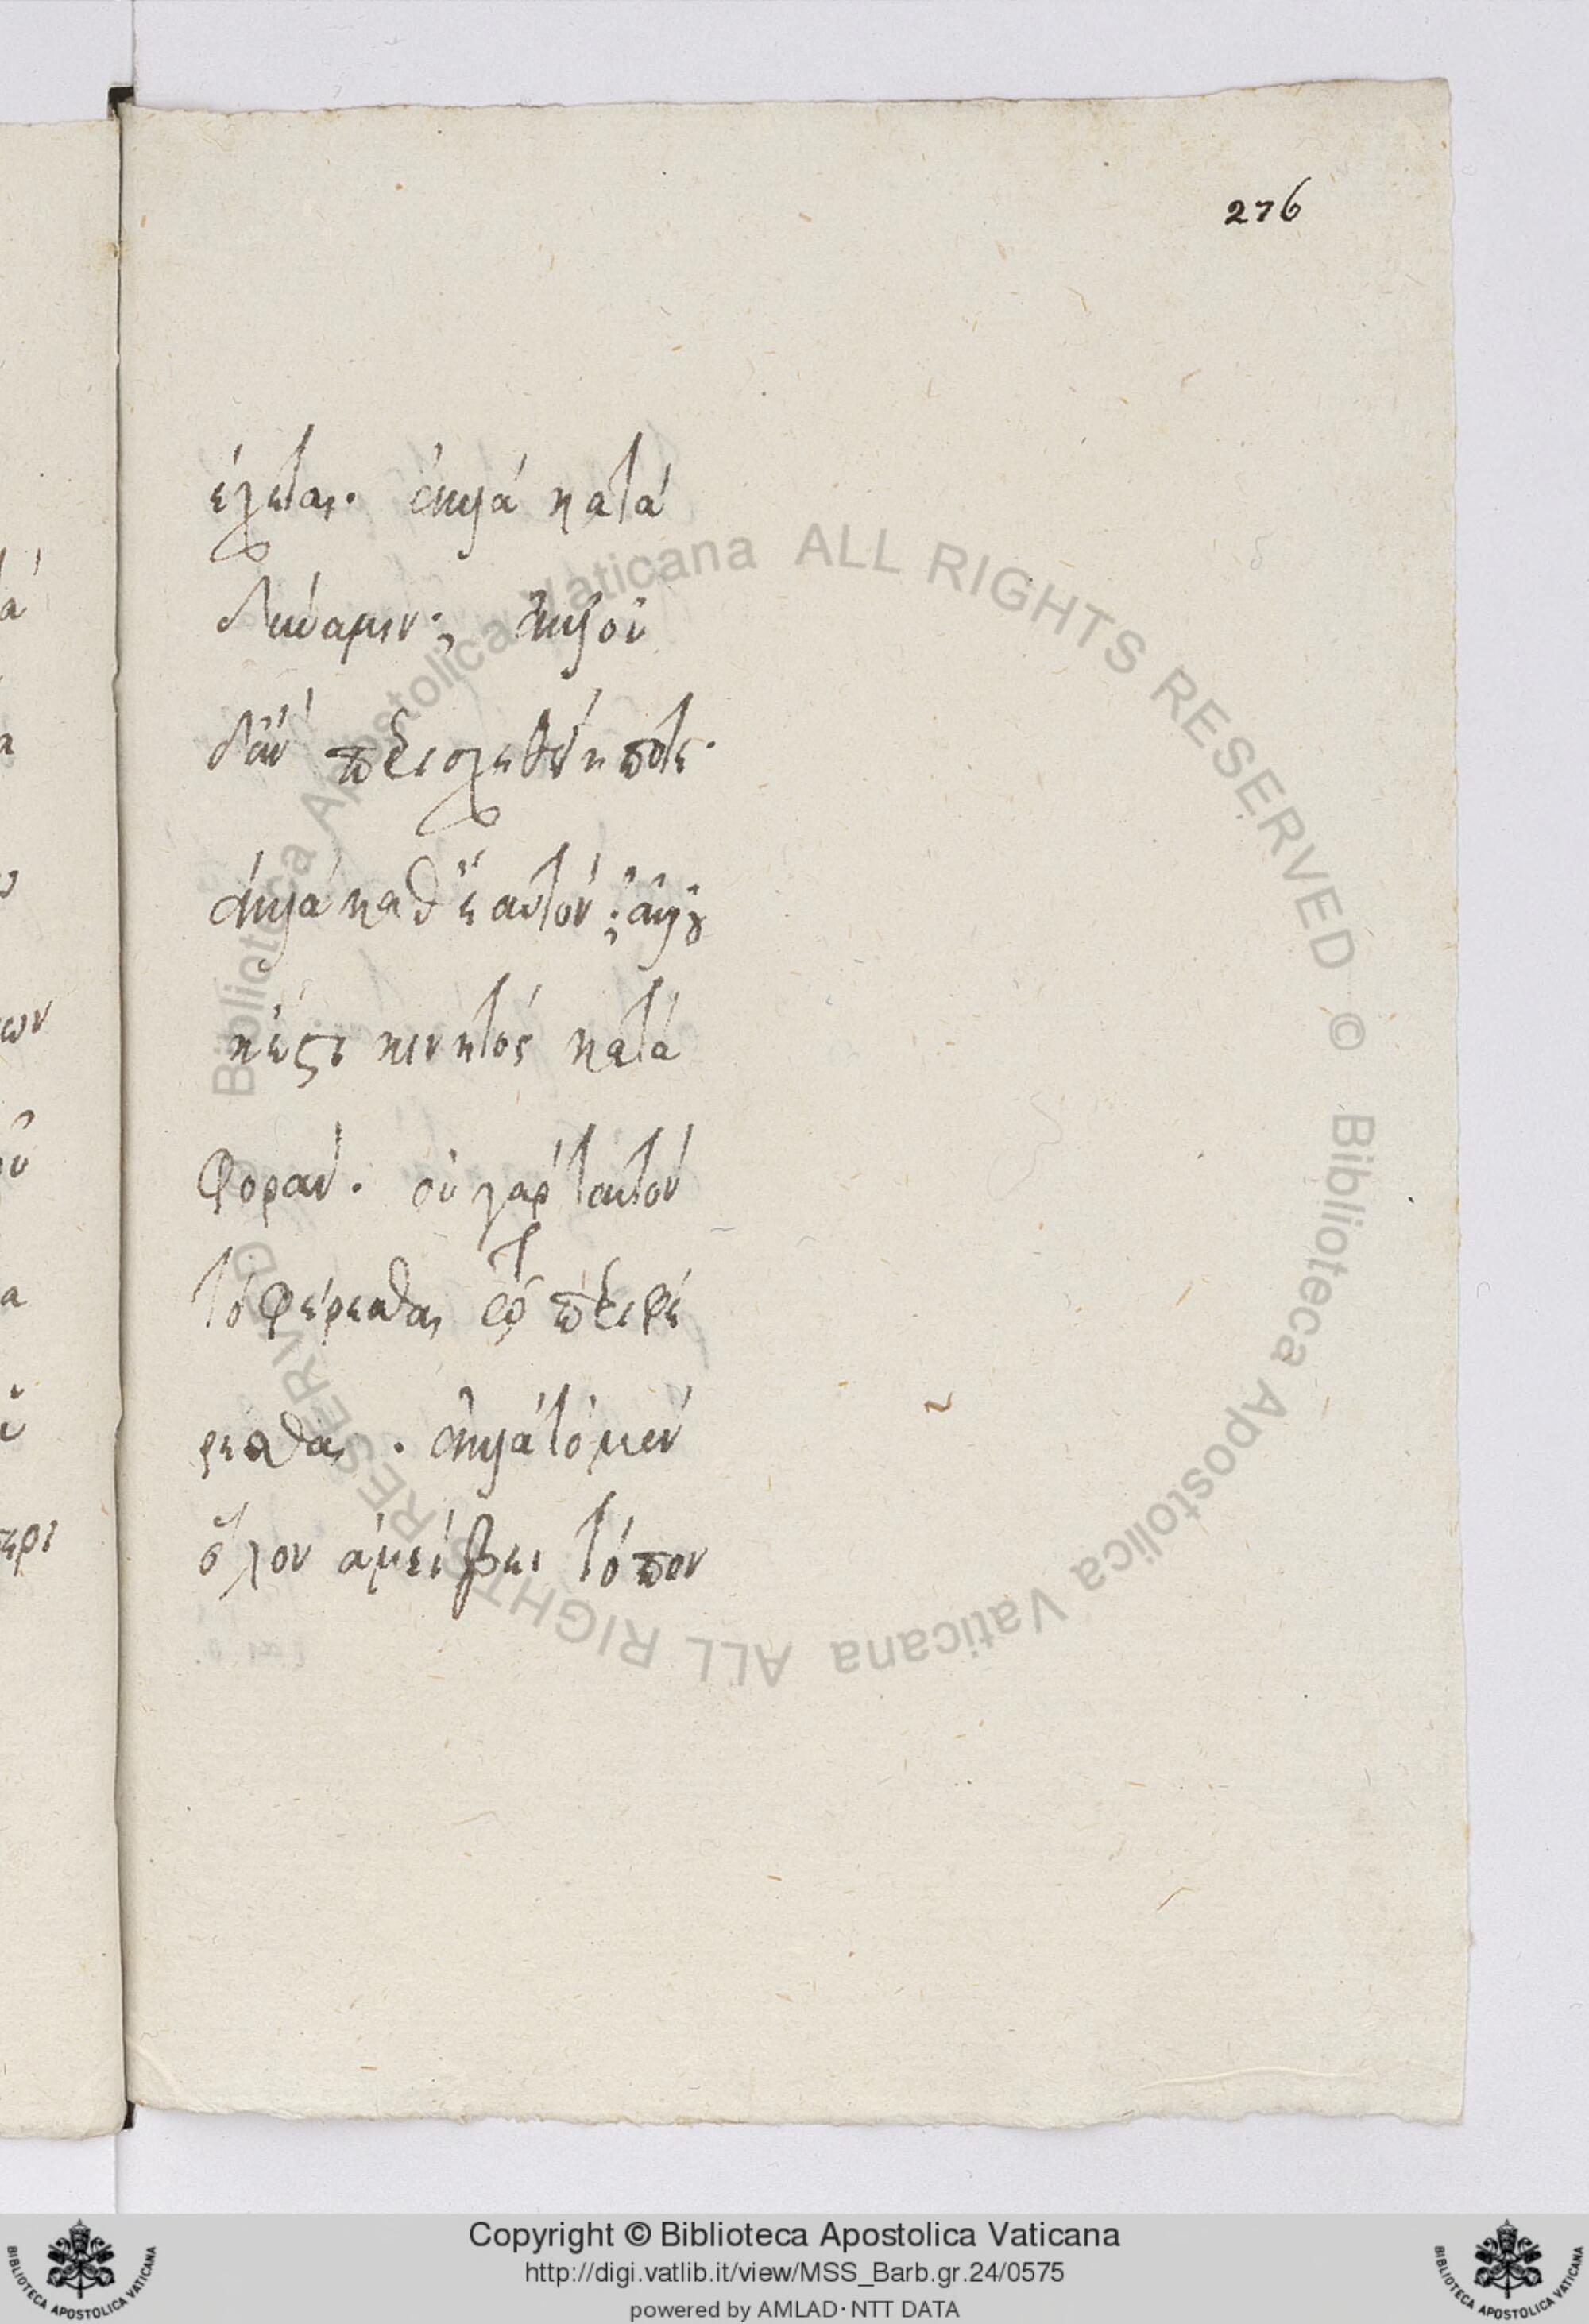 276
έχεται. ἀλλὰ κατὰ
δύναμιν; ἀλλ' οὐ
δ' ἂν περισχεθείη ποτέ.
ἀλλὰ καθ' ἑαυτόν; ἀλλ' οὐ
κ ἔστι κινητός κατὰ
φοράν. οὐ γὰρ ταυτὸν
τὸ φέρεσθαι τῷ περιφέ
ρεσθαι. ἀλλὰ τὸ μὲν
ὅλον ἀμείβει τόπον
Biblioteca Apostolica Vaticana ALL RIGHTS RESERVED © Biblioteca Apostolica Vaticana ALL RIGHTS RESERVED ©
Copyright © Biblioteca Apostolica Vaticana
http://digi.vatlib.it/view/MSS_Barb.gr.24/0575
powered by AMLAD · NTT DATA
BIBLIOTECA APOSTOLICA VATICANA
BIBLIOTECA APOSTOLICA VATICANA